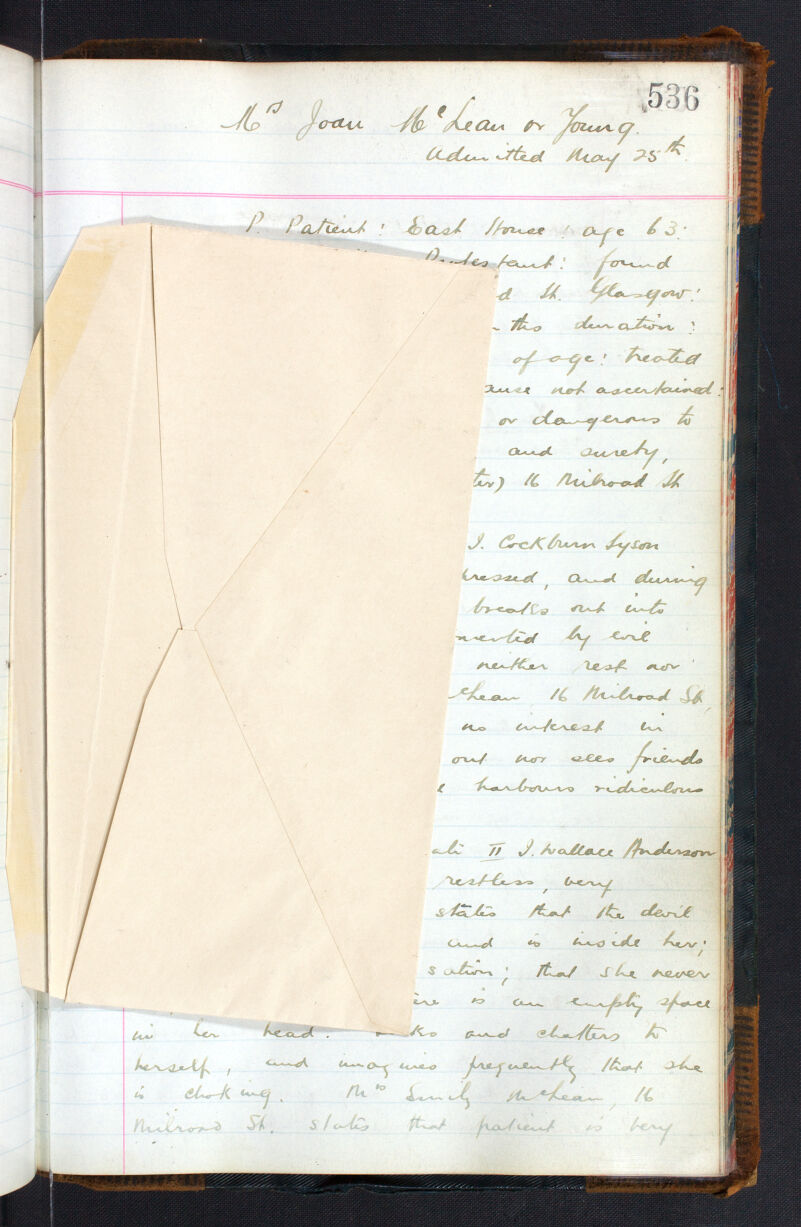 536
Mrs Joan McLean or Young.
Admitted May 25th.
P. Patient: East House: age 63:
Protestant: found
d St. Glasgow:
this duration:
of age: treated
ause not ascertained:
or dangerous to
and surety,
ter) 16 Milroad St
J. Cockburn Syson
pressed, and during
breaks out into
mented by evil
neither rest nor
cLean 16 Milroad St,
no interest in
out nor sees friends
e harbours ridiculous
ate II J. Wallace Anderson
restless, very
states that the devil
and is inside her;
sation; that she never
ere is an empty space
in her head. and chatters to
herself, and imagines frequently that she
is choking. Mrs Emily McLean, 16
Milroad St. states that patient is very